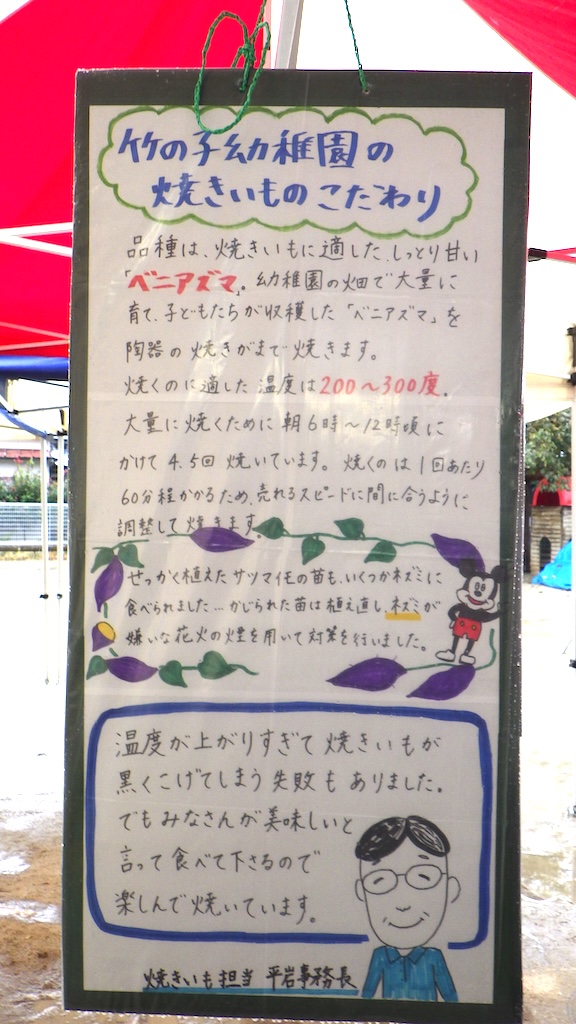 竹の子幼稚園の
焼きいものこだわり
品種は、焼きいもに適した、しっとり甘い
「ベニアズマ」。幼稚園の畑で大量に
育て、子どもたちが収穫した「ベニアズマ」を
陶器の焼きがまで焼きます。
焼くのに適した温度は200〜300度。
大量に焼くために朝6時〜12時頃に
かけて4.5回焼いています。焼くのは1回あたり
60分程かかるため、売れるスピードに間に合うように
調整して焼きます。
せっかく植えたサツマイモの苗も、いくつかネズミに
食べられました…かじられた苗は植え直し、ネズミが
嫌いな花火の煙を用いて対策を行いました。
温度が上がりすぎて焼きいもが
黒くこげてしまう失敗もありました。
でもみなさんが美味しいと
言って食べて下さるので
楽しんで焼いています。
焼きいも担当 平岩事務長